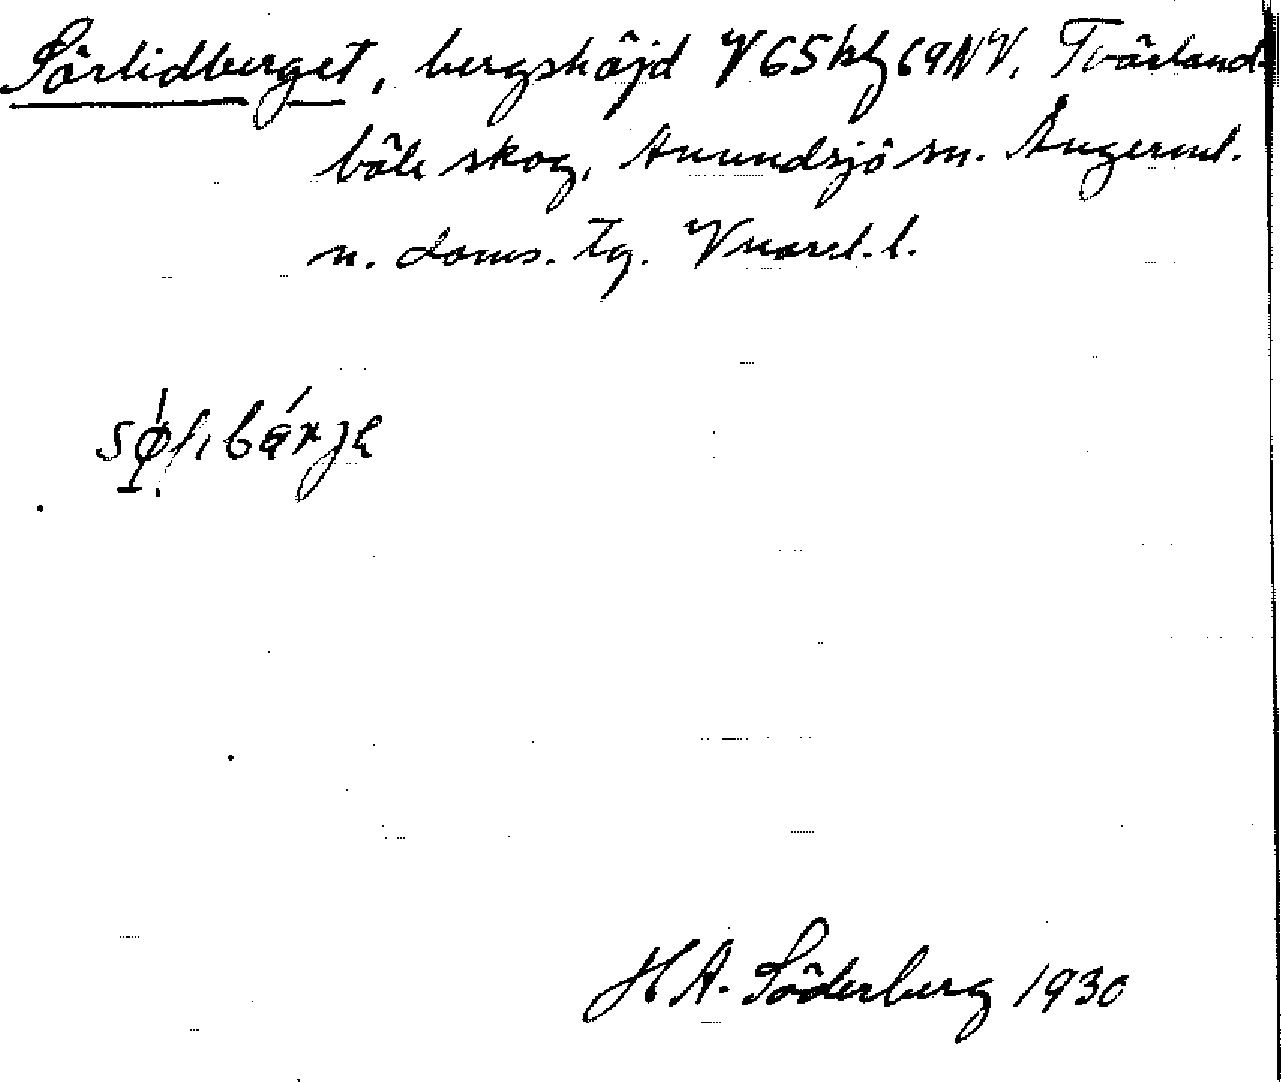 Sörlidberget, bergshöjd V 65 kbl 69 NV. Tvärland-
böle skog, Anundsjö sn. Ångerml.
n. doms. tg. Vnorrl. l.
H A. Söderberg 1930